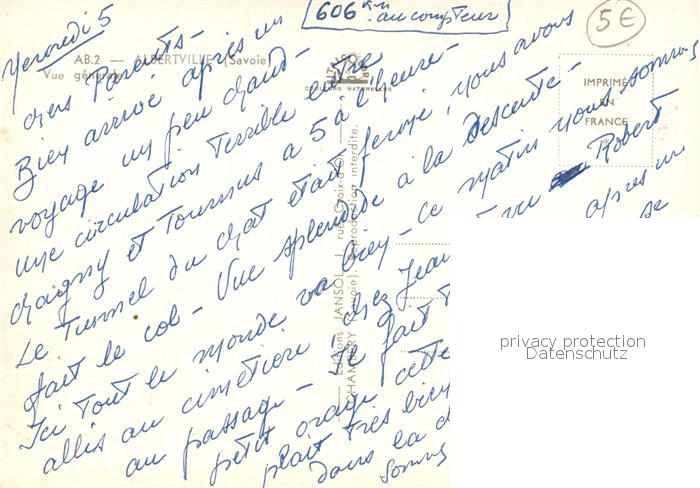 606 km
au compteur
5 €
Mercredi 5
AB.2 - ALBERTVILLE (Savoie)
Vue générale
COULEURS NATURELLES
IMPRIMÉ
EN
FRANCE
Editions JANSOL, rue Croix-d'Or
CHAMBÉRY (Savoie). Reproduction interdite.
chers Parents -
Bien arrivé après un
voyage un peu chaud -
une circulation terrible entre
chagny et Tournus a 5 à l'heure -
Le Tunnel du chat était fermé, nous avons
fait le col - Vue splendide à la descente -
Ici tout le monde va bien - ce matin nous sommes
allés au cimetière, chez Jean
vu Robert
au passage - fait
après un
petit orage cette
se
plait très bien
dans la
Sommes
privacy protection
Datenschutz